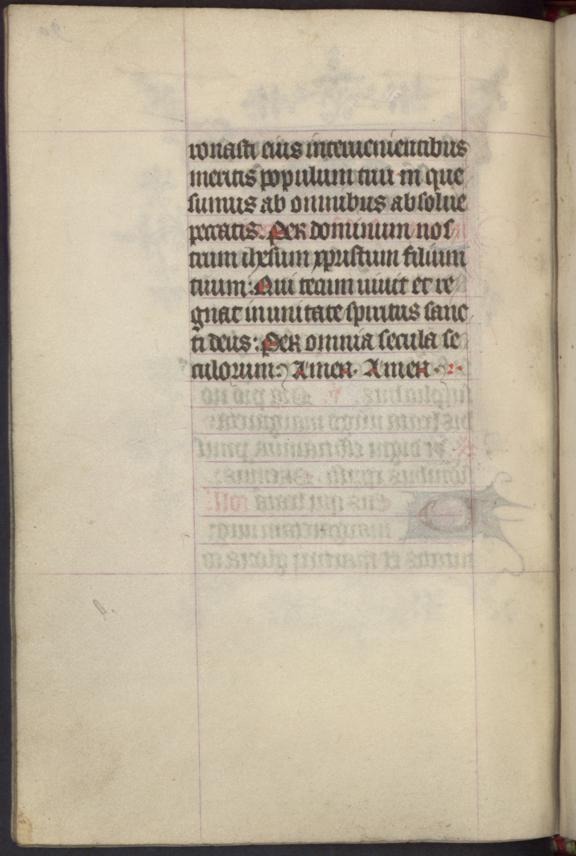 ronasti eius intervenientibus
meritis populum tuum que
sumus ab omnibus absolue
peccatis. Per dominum nos
trum ihesum xpristum filium
tuum: Qui tecum uiuit et re
gnat in unitate spiritus sanc
ti deus: Per omnia secula se
culorum: Amen. Amen.